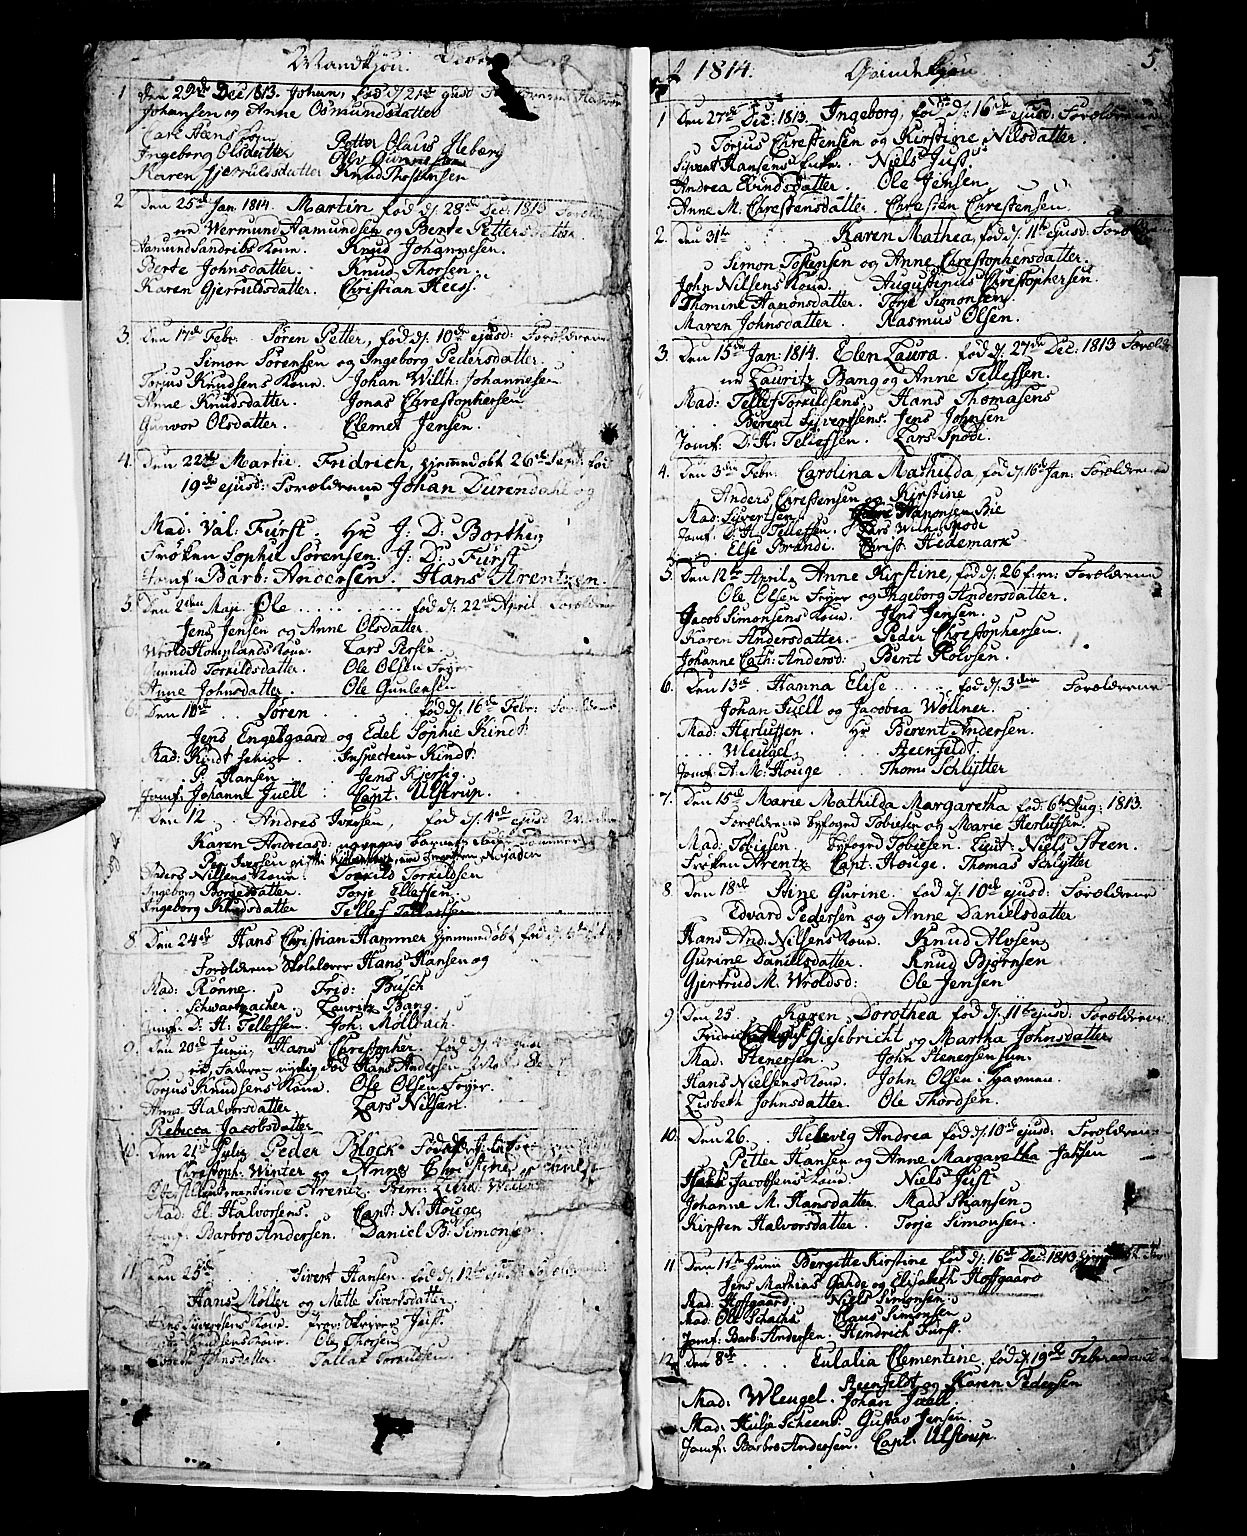 Mandkjøn. Døbte
1 Den 29de Dec 1813. Johan, fød d. 21de ejusd Forældrene Halvor
Johansen og Anne Osmundsdatter
Petter Olaus Heberg
Ingeborg Olsdatter
Karen Gjerruldsdatter Knud Thostensen
2 Den 25de Jan 1814. Martin fød d. 28de Dec: 1813 Foræld
ne Wermund Aamundsen og Berte Pettersdatter
Aamund Sandvigs Kone. Knud Johannesen.
Berte Johnsdatter. Knud Thorsen
Karen Gjerruldsdatter. Christian Heeg.
3. Den 17de Febr. Søren Petter, fød d. 10de ejusd: Forældrene
Simon Sørensen og Ingeborg Pedersdatter.
Torjus Knudsens Kone. Johan Wilh: Johannesen
Anne Knudsdatter. Jonas Christophersen
Gunvor Olsdatter. Clemet Jensen.
4. Den 22de Martii. Fridrich, hjemmedøbt 26de Sept: fød
19de ejusd: Forældrene Johan Durendahl og
Mad: Val: Fürst. Hr J: D: Borthen
Frøken Sophie Sørensen. J: D: Fürst
Jomf: Barb: Andersen. Hans Arentzen.
5. Den 2den Maji Ole . . . . fød d. 22de April Forældrene
Jens Jensen og Anne Olsdatter
Wrold Stomplands Kone. Lars Persen
Gunnild Torkildsdatter. Ole Olsen Foyer
Anne Johnsdatter. Ole Gundersen
6. Den 10de . . Søren . . . fød d. 16de Febr: Forældrene
Jens Engelsgaard og Edel Sophie Kindt
Mad: Kindt . Inspecteur Kindt
P: Hansen Jens Kjersig.
Jomf: Johanne Juell. Capt. Ulstrup.
7. Den 12 . Andres Iversen, fød d. 4de ejusd
Karen Andreasd:
Anders Nilsens Kone. Torkild Torkildsen
Ingeborg Borgesdatter. Torje Ellefsen
Ingeborg Knudsdatter Tellef Tallaksen
8. Den 24de Hans Christian Hammer hjemmedøbt fød d.
Forældrene Skolelærer Hans Hansen og
Mad: Rønne. Frid: Busch
Schwartzacher. Lauritz Bang.
Jomf. D: H: Tellefsen. Joh: Mollbach.
9. Den 20de Junii, Hans Christopher. fød d.
Torjus Knudsens Kone. Ole Olsen Foyer.
Anne Halvorsdatter Lars Nilsen.
Rebecca Jacobsdatter
10. Den 21de Julii Peder Block. Fød d.
Christoph: Winter og Anne Christine
Oberstlieutenantinde Arentz. Prem: Lieut: Winter
Mad: El: Halvorsens. Capt: N: Houge
Jomf: Barbro Andersen. Daniel B: Simonsen
11. Den 25de . . . Sivert Hansen. fød d. 12te ejusd Forældrene
Hans Møller og Mette Sivertsdatter
Hans Sivertsens Kone. Prov: Skriver Feist.
Knudsens Kone. Ole Thorsen
Johnsdatter. Tallak Torkildsen

1814. Qvindekjøn 5.
1 Den 27de Dec: 1813. Ingeborg, fød d. 16de ejusd: Forældrene
Torjus Christensen og Kirstine Nilsdatter.
Sivert Hansens Kone. Niels Just.
Andrea Evindsdatter. Ole Jensen
Anne M. Christensdatter. Christen Christensen.
2. Den 31te Karen Mathea, fød d. 11te ejusd: Forældrene
Simon Tostensen og Anne Christophersdatter.
John Nilsens Kone. Augustinus Christophersen.
Thomine Aanonsdatter. Torje Simonsen.
Maren Johnsdatter. Rasmus Olsen.
3. Den 15de Jan: 1814. Elen Laura. fød d. 27de Dec: 1813 Foræld
ne Lauritz Bang og Anne Tellefsen.
Mad: Tellef Torkildsens. Hans Thomasens
Berent Sivertsens. Jens Johnsen
Jomf: D: H. Tellefsen. Lars Spodi.
4. Den 3die Febr. Carolina Mathilda fød d. 16de Jan: Forældrene
Anders Christensen og Kirstine
Mad: Sivertsen. Aanonsen Bie
Jomf: D. H. Tellefsen. Lars Wilh: Spodi
Else Brandi. Christ Hedemark
5. Den 12te April, Anne Kirstine, fød d. 26 f:m: Forældrene
Ole Olsen Foyer og Ingeborg Andersdatter.
Jacob Simonsens Kone. Jens Jensen.
Karen Andersdatter. Peder Christophersen.
Johanne Cath: Andersd: Bent Rolvsen.
6. Den 13de Hanna Elise . . . fød d. 3den Forældrene
Johan Juell og Jacobea Wøllner.
Mad: Herlufsen. Hr Berent Andersen.
. . . Wleugel. Aeenfeldt.
Jomf: A. M: Houge Thom: Schlytter
7. Den 15de Marie Mathilda Margaretha fød. 6te Aug: 1813.
Forældrene byfoged Tobiesen og Marie Herlufsen.
Mad: Tobiesen. byfoged Tobiesen. Lieut: Niels Steen.
Frøken Arentz Capt: Houge. Thomas Schlytter
8 Den 18de Stine Gurine. fød d. 10de ejusd: Forældrene
Edvard Pedersen og Anne Danielsdatter
Hans And: Nilsens Kone. Knud Alvsen
Gurine Danielsdatter. Knud Bjørnsen
Gjertrud M. Wroldsd: Ole Jensen
9 Den 25. Karen Dorothea fød d. 11te ejusd: Forældrene
Giesebricht og Martha Johnsdatter
Mad: Stenersen. John Stenersen sen.
Hans Nielsens Kone. John Olsen: Havnen
Lisbeth Johnsdatter. Ole Thordsen.
10. Den 26. Helevig Andrea fød d. 10de ejusd: Forældrene
Petter Hansen og Anne Margaretha Jahnsen
Jacobsens Kone. Niels Just
Johanne M. Hansdatter. Mads Stiansen
Kirsten Halvorsdatter. Torje Simonsen.
11 Den 11te Junii Bergitte Kirstine fød d. 16de Dec: 1813
Jens Mathias Gahde og Elisabeth Hoffgaard
Mad: Hoffgaard Niels Simonsen
Mad: Ole Schacht Claus Simonsen
Jomf: Barb: Andersen. Hendrich Fürst.
12. Den 8de . . . Eulalia Clementine, fød d. 19de Febr
Aeenfeldt og Karen Pedersen
Mad: Wleugel. Johan Juell.
Mad: Hulje Scheen. Gustav Jensen
Jomf: Barbro Andersen. Capt: Ulstrup.